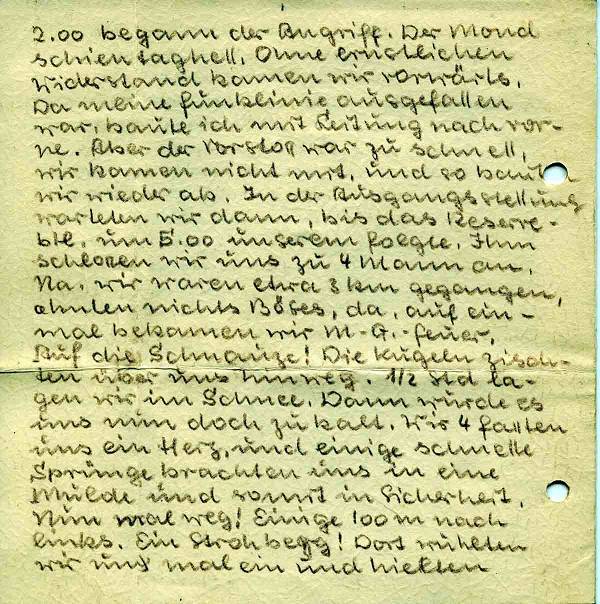 2.00 begann der Angriff. Der Mond
schien taghell. Ohne ernstlichen
Widerstand kamen wir vorwärts.
Da meine Funklinie ausgefallen
war, baute ich mit Leitung nach vor-
ne. Aber der Vorstoß war zu schnell,
wir kamen nicht mit, und so bauten
wir wieder ab. In der Ausgangsstellung
warteten wir dann, bis das Reserve-
btl. um 5.00 unserem folgte. Ihm
schloßen wir uns zu 4 Mann an.
Na, wir waren etwa 3 km gegangen,
ahnten nichts Böses, da, auf ein-
mal bekamen wir M.-G.-feuer.
Auf die Schmauze! Die Kugeln zisch-
ten über uns hinweg. 1/2 Std la-
gen wir im Schnee. Dann wurde es
uns nun doch zu kalt. Wir 4 faßten
uns ein Herz, und einige schnelle
Sprünge brachten uns in eine
Mulde und somit in Sicherheit.
Nun mal weg! Einige 100 m nach
links. Ein Strohberg! Dort wühlten
wir uns mal ein und hielten